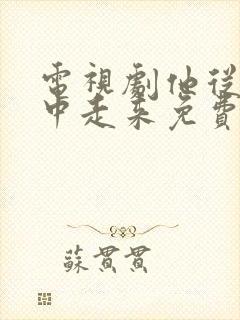 電視劇他從
中走來免費
蘇貫貫